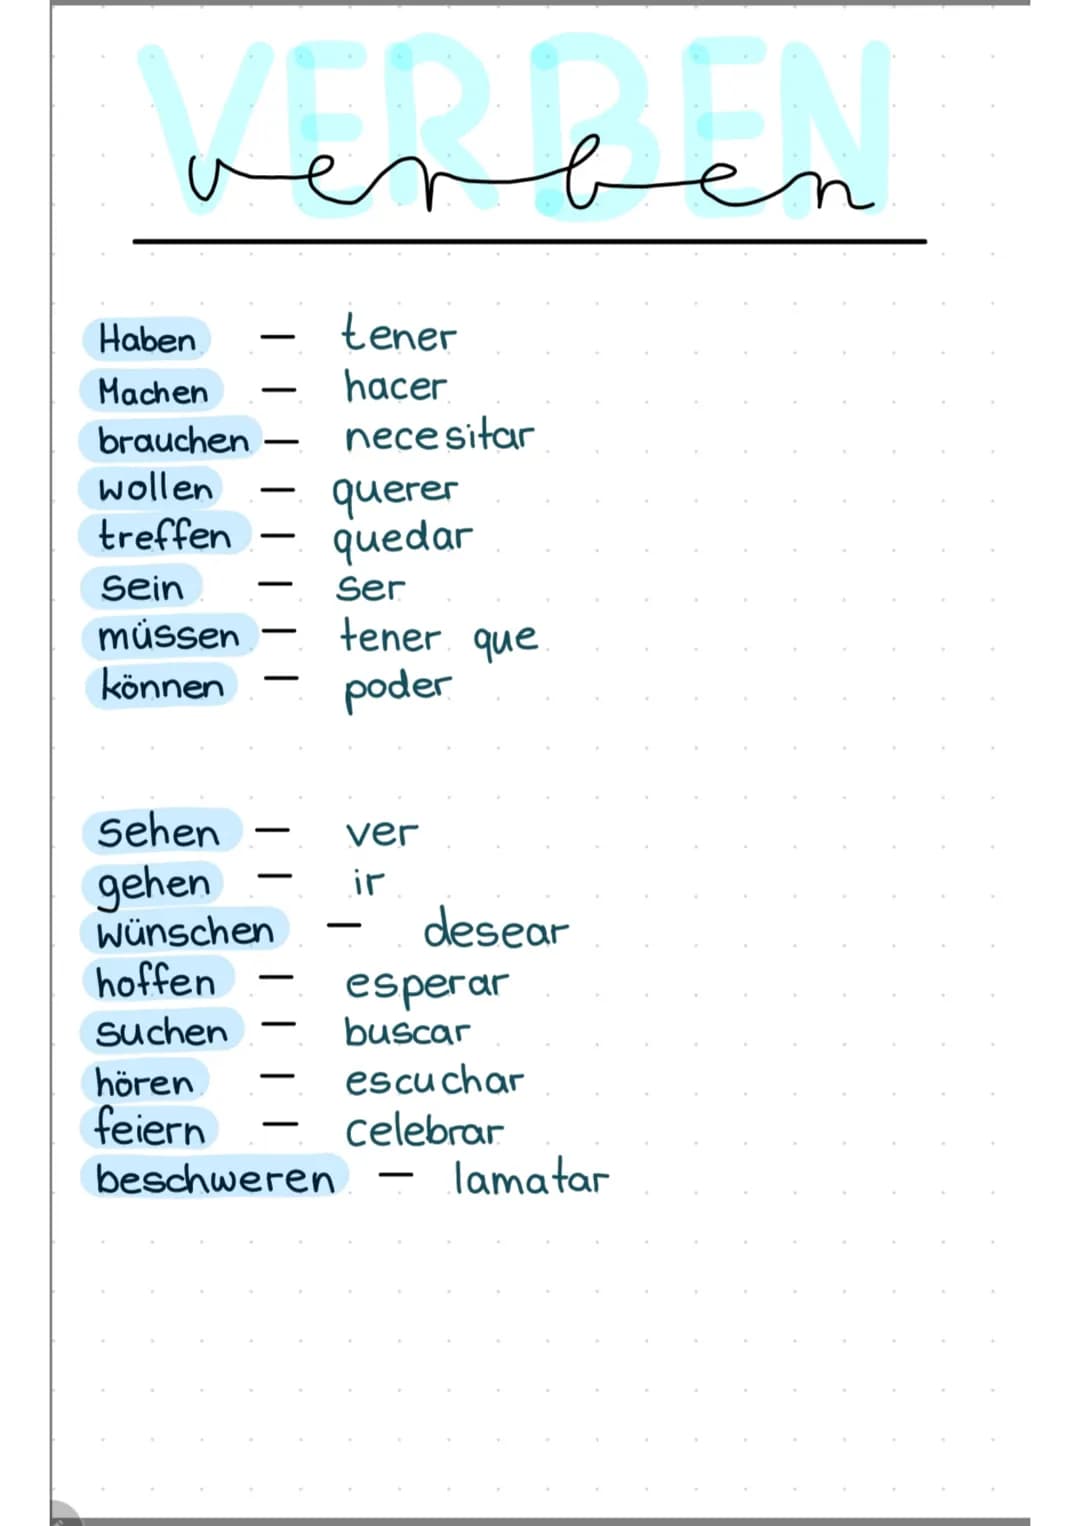 VERBEN
verben
Haben — tener
Machen — hacer
brauchen — necesitar
wollen — querer
treffen — quedar
sein — ser
müssen — tener que
können — poder
sehen — ver
gehen — ir
wünschen — desear
hoffen — esperar
suchen — buscar
hören — escuchar
feiern — celebrar
beschweren — lamatar